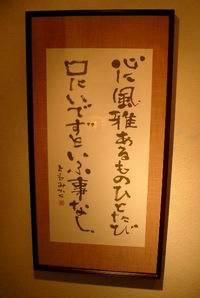 心に風雅あるものひとたび
口にいでずといふ事なし